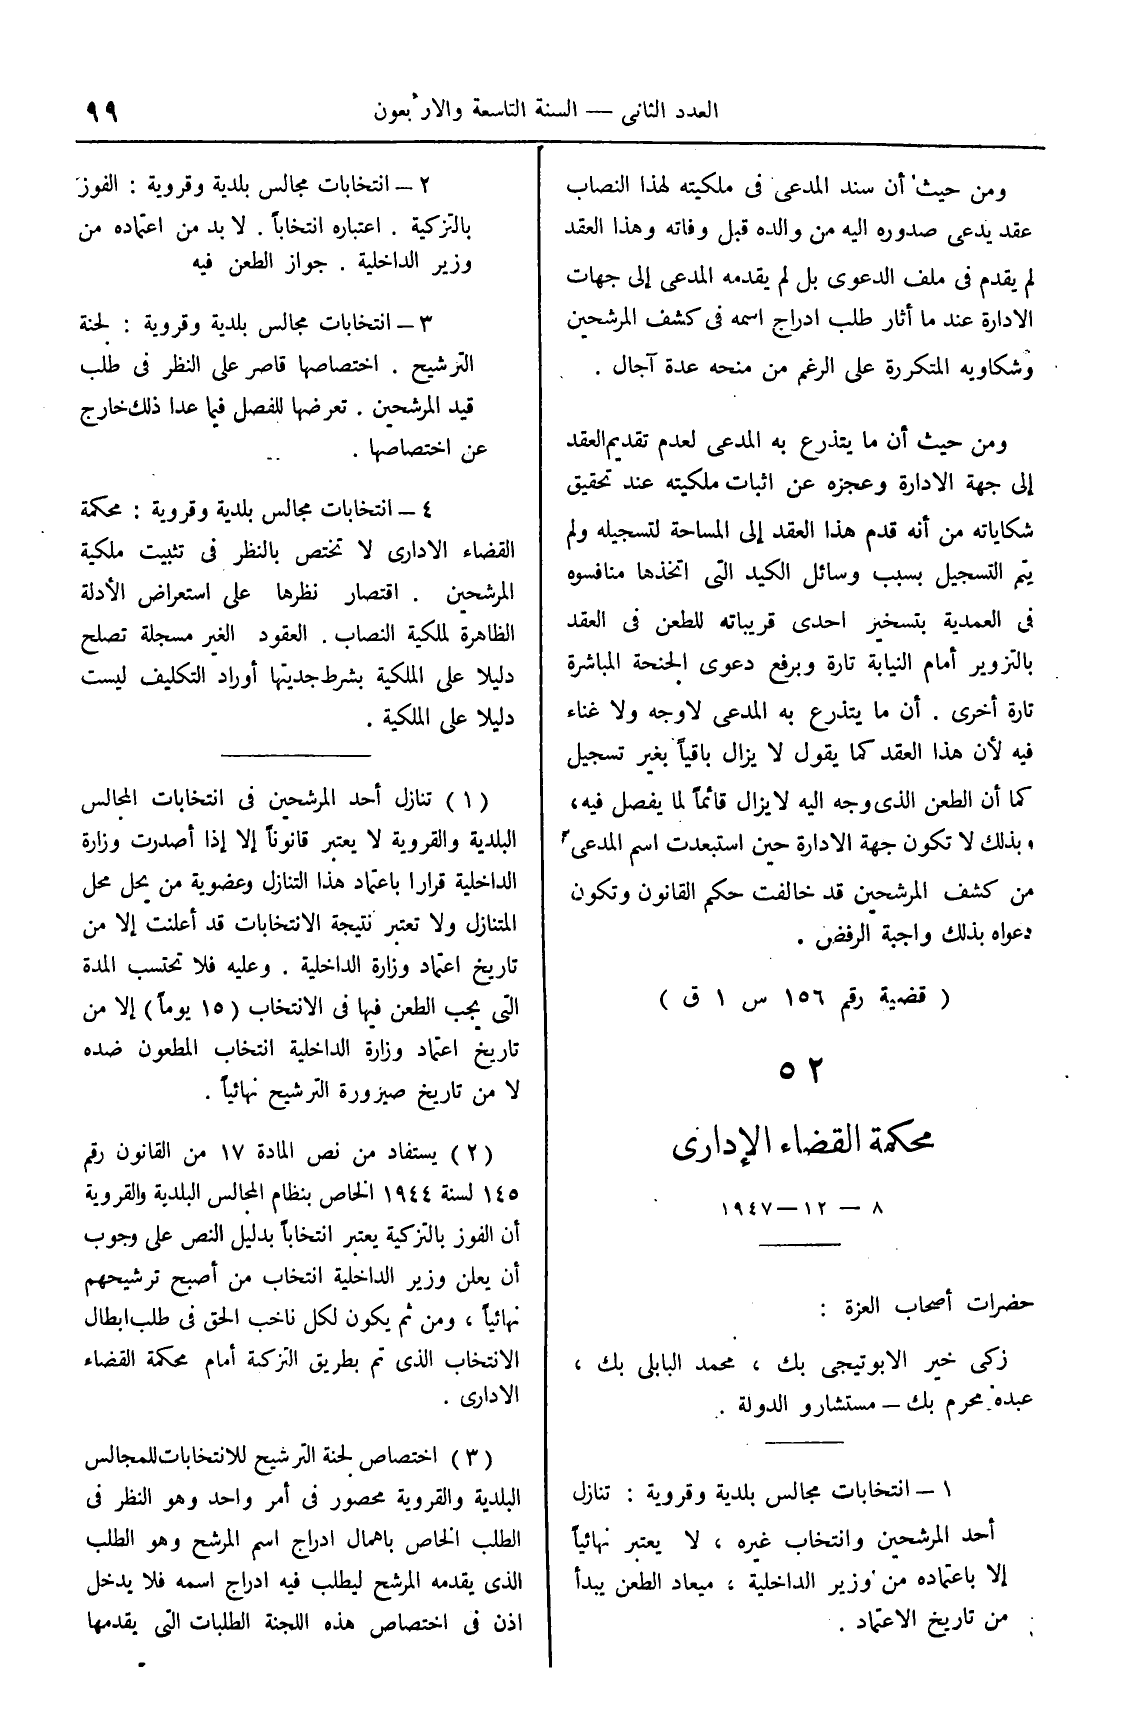 العدد الثانى — السنة التاسعة والاربعون
٩٩
ومن حيث أن سند المدعى فى ملكيته لهذا النصاب
عقد يدعى صدوره اليه من والده قبل وفاته وهذا العقد
لم يقدم فى ملف الدعوى بل لم يقدمه المدعى إلى جهات
الادارة عند ما أثار طلب ادراج اسمه فى كشف المرشحين
وشكاويه المتكررة على الرغم من منحه عدة آجال .
ومن حيث أن ما يتذرع به المدعى لعدم تقديم العقد
إلى جهة الادارة وعجزه عن اثبات ملكيته عند تحقيق
شكاياته من أنه قدم هذا العقد إلى المساحة لتسجيله ولم
يتم التسجيل بسبب وسائل الكيد التى اتخذها منافسوه
فى العمدية بتسخير احدى قريباته للطعن فى العقد
بالتزوير أمام النيابة تارة وبرفع دعوى الجنحة المباشرة
تارة أخرى . أن ما يتذرع به المدعى لاوجه ولا غناء
فيه لأن هذا العقد كما يقول لا يزال باقياً بغير تسجيل
كما أن الطعن الذى وجه اليه لايزال قائماً لما يفصل فيه ،
وبذلك لا تكون جهة الادارة حين استبعدت اسم المدعى
من كشف المرشحين قد خالفت حكم القانون وتكون
دعواه بذلك واجبة الرفض .
( قضية رقم ١٥٦ س ١ ق )
٥٢
محكمة القضاء الإدارى
٨ — ١٢ — ١٩٤٧
حضرات أصحاب العزة :
زكى خير الابوتيجى بك ، محمد البابلى بك ،
عبده محرم بك — مستشارو الدولة .
١ — انتخابات مجالس بلدية وقروية : تنازل
أحد المرشحين وانتخاب غيره ، لا يعتبر نهائياً
إلا باعتماده من وزير الداخلية ، ميعاد الطعن يبدأ
من تاريخ الاعتماد .
٢ — انتخابات مجالس بلدية وقروية : الفوز
بالتزكية . اعتباره انتخاباً . لا بد من اعتماده من
وزير الداخلية . جواز الطعن فيه
٣ — انتخابات مجالس بلدية وقروية : لجنة
الترشيح . اختصاصها قاصر على النظر فى طلب
قيد المرشحين . تعرضها للفصل فيما عدا ذلك خارج
عن اختصاصها .
٤ — انتخابات مجالس بلدية وقروية : محكمة
القضاء الادارى لا تختص بالنظر فى تثبيت ملكية
المرشحين . اقتصار نظرها على استعراض الأدلة
الظاهرة لملكية النصاب . العقود الغير مسجلة تصلح
دليلا على الملكية بشرط جديتها أوراد التكليف ليست
دليلا على الملكية .
( ١ ) تنازل أحد المرشحين فى انتخابات المجالس
البلدية والقروية لا يعتبر قانوناً إلا إذا أصدرت وزارة
الداخلية قرارا باعتماد هذا التنازل وعضوية من يحل محل
المتنازل ولا تعتبر نتيجة الانتخابات قد أعلنت إلا من
تاريخ اعتماد وزارة الداخلية . وعليه فلا تحتسب المدة
التى يجب الطعن فيها فى الانتخاب ( ١٥ يوماً ) إلا من
تاريخ اعتماد وزارة الداخلية انتخاب المطعون ضده
لا من تاريخ صيزورة الترشيح نهائياً .
( ٢ ) يستفاد من نص المادة ١٧ من القانون رقم
١٤٥ لسنة ١٩٤٤ الخاص بنظام المجالس البلدية والقروية
أن الفوز بالتزكية يعتبر انتخاباً بدليل النص على وجوب
أن يعلن وزير الداخلية انتخاب من أصبح ترشيحهم
نهائياً ، ومن ثم يكون لكل ناخب الحق فى طلب ابطال
الانتخاب الذى تم بطريق التزكية أمام محكمة القضاء
الادارى .
( ٣ ) اختصاص لجنة الترشيح للانتخابات للمجالس
البلدية والقروية محصور فى أمر واحد وهو النظر فى
الطلب الخاص باهمال ادراج اسم المرشح وهو الطلب
الذى يقدمه المرشح ليطلب فيه ادراج اسمه فلا يدخل
اذن فى اختصاص هذه اللجنة الطلبات التى يقدمها